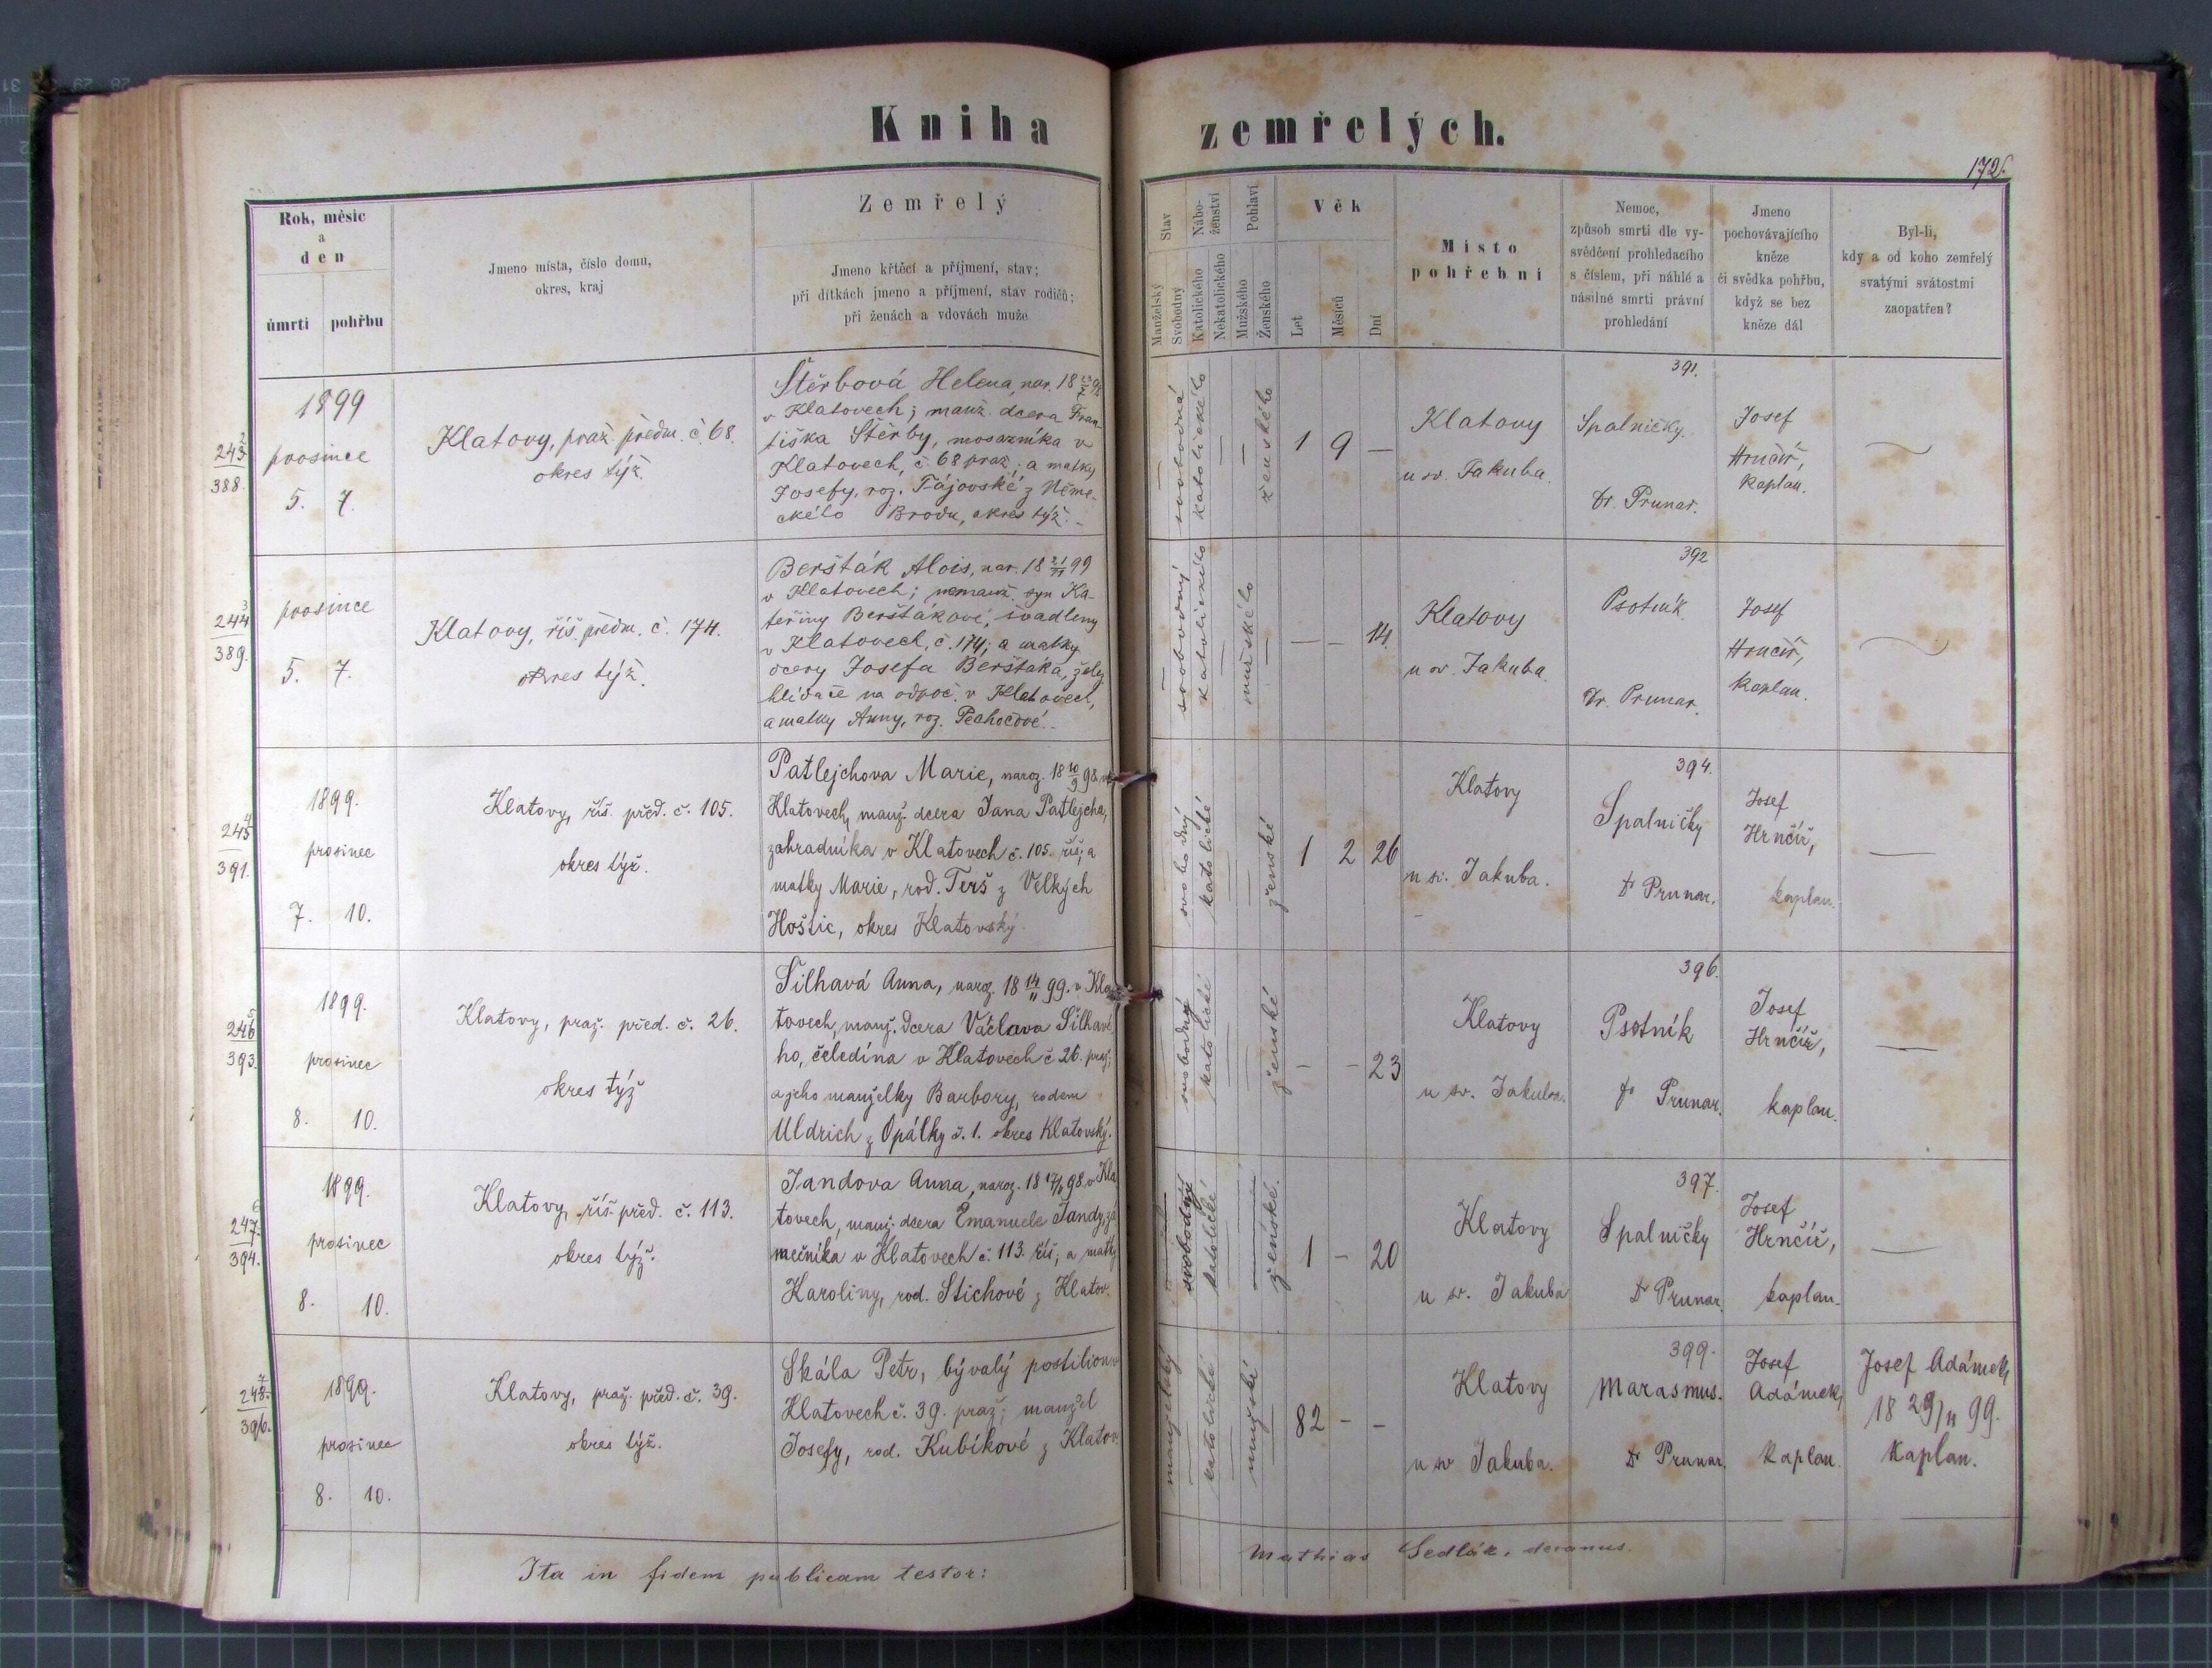 Kniha zemřelých.
172.
Rok, měsíc
a
den
úmrtí pohřbu
Jmeno místa, číslo domu,
okres, kraj
Zemřelý
Jmeno křtěcí a příjmení, stav;
při dítkách jmeno a příjmení, stav rodičů;
při ženách a vdovách muže
Stav
Manželský
Svobodný
Nábo-
ženství
Katolického
Nekatolického
Pohlaví
Mužského
Ženského
Věk
Let
Měsíců
Dní
Místo
pohřební
Nemoc,
způsob smrti dle vy-
svědčení prohledacího
s číslem, při náhlé a
násilné smrti právní
prohledání
Jmeno
pochovávajícího
kněze
či svědka pohřbu,
když se bez
kněze dál
Byl-li,
kdy a od koho zemřelý
svatými svátostmi
zaopatřen?
243
388.
1899
prosince
5. 7.
Klatovy, praž. předm. č. 68.
okres týž.
Štěrbová Helena, nar. 18
v Klatovech; manž. dcera Fran-
tiška Štěrby, mosazníka v
Klatovech, č. 68 praž.; a matky
Josefy, roz. Fájovské z Něme-
ckého Brodu, okres týž.
svobodná
katolického
ženského
1 9 —
Klatovy
u sv. Jakuba.
391.
Spalničky.
Dr. Prunar.
Josef
Hrnčíř,
kaplan.
244
389.
prosince
5. 7.
Klatovy, říš. předm. č. 174.
okres týž.
Beršták Alois, nar. 18 21/11 99
v Klatovech; nemanž. syn Ka-
teřiny Berštákové, švadleny
v Klatovech, č. 174; a matky
dcery Josefa Berštáka, želez.
hlídače na odpoč. v Klatovech,
a matky Anny, roz. Pechočové.
svobodný
katolického
mužského
— — 14.
Klatovy
u sv. Jakuba.
392
Psotník
Dr. Prunar.
Josef
Hrnčíř,
kaplan.
245
391.
1899.
prosinec
7. 10.
Klatovy, říš. před. č. 105.
okres týž.
Patlejchova Marie, naroz. 18 10/9 98 v
Klatovech, manž. dcera Jana Patlejcha,
zahradníka v Klatovech č. 105. říš; a
matky Marie, rod. Terš z Velkých
Hoštic, okres Klatovský.
svobodný
katolické
ženské
1 2 26
Klatovy
u sv. Jakuba.
394.
Spalničky
Dr Prunar.
Josef
Hrnčíř,
kaplan.
246
393.
1899.
prosinec
8. 10.
Klatovy, praž. před. č. 26.
okres týž
Šilhavá Anna, naroz. 18 14/11 99. v Kla
tovech, manž. dcera Václava Šilhavé
ho, čeledína v Klatovech č 26. praž;
a jeho manželky Barbory, rodem
Uldrich z Opálky č. 1. okres Klatovský.
svobodný
katolické
ženské
— — 23
Klatovy
u sv. Jakuba.
396.
Psotník
Dr Prunar.
Josef
Hrnčíř,
kaplan.
247.
394.
1899.
prosinec
8. 10.
Klatovy, říš. před. č. 113.
okres týž.
Jandova Anna, naroz. 18 98. v Kla
tovech, manž. dcera Emanuele Jandy, zá
mečníka v Klatovech č. 113. říš; a matky
Karoliny, rod. Stichové z Klatov.
svobodný
katolické
ženské.
1 — 20
Klatovy
u sv. Jakuba
397.
Spalničky
Dr Prunar.
Josef
Hrnčíř,
kaplan.
248.
396.
1899.
prosinec
8. 10.
Klatovy, praž. před. č. 39.
okres týž.
Skála Petr, bývalý postilion v
Klatovech č. 39. praž; manžel
Josefy, rod. Kubíkové z Klatov.
manželský
katolické
mužské
82 — —
Klatovy
u sv Jakuba.
399.
Marasmus.
Dr Prunar.
Josef
Adámek,
kaplan.
Josef Adámek,
18 29/11 99.
kaplan.
Ita in fidem publicam testor:
Mathias Sedlák, decanus.